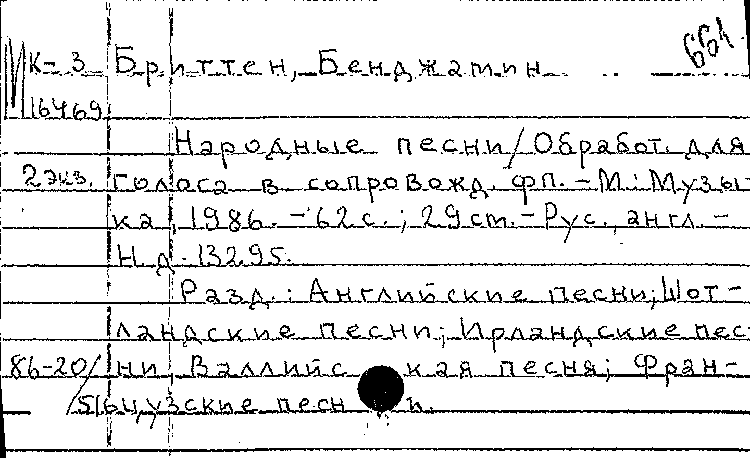 661.
К-3 Бриттен, Бенджамин
16469
Народные песни/Обработ. для
2 экз. голоса в сопровожд. фп. - М.: Музы-
ка, 1986. - 62 с.; 29 cm. - Рус., англ. -
Н.д. 13295.
Разд.: Английские песни; Шот-
ландские песни; Ирландские пес
86-20/ ни; Валлийская песня; Фран-
516 цузские песни.